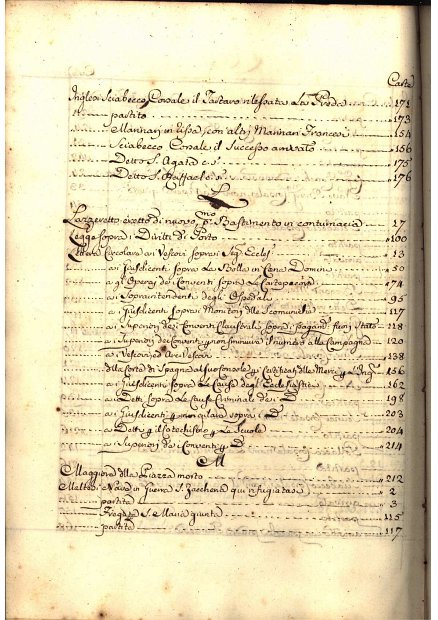 Carte
Inglesi Sciabecco Corsale il Tartaro rilasciata la Preda 171
partito 173
Marinari in Rissa con altri Marinari Francesi 154
Sciabecco Corsale il Successo arrivato 156
Detto S. Agata c.s. 175
Detto S. Raffaele 176
L
Lazzeretto eretto di nuovo, pmo Bastimento in contumacia 17
Legge sopra i Diritti di Porto 100
Lettera Circolare ai Vescovi sopra i Eccles 13
ai Jusdicenti sopra la Bolla in Cena Domini 50
agl'Operai de Conventi sopra la 174
ai Soprintendenti degli Ospedali 95
ai Jusdicenti sopra i Monitorj delle Scomuniche 117
ai Superiori dei Conventi Claustrali sopra i fuori Stato 118
ai Superiori dei Conventi non 120
ai Vescovi, ed Arcivescovi 138
alla Corte di Spagna al suo Console 156
ai Jusdicenti sopra le Cause degl'Ecclesiastici 162
ai Detti sopra le Cause Criminali de i D 198
ai Jusdicenti sopra i D 203
ai Detti il Catechismo le Scuole 204
ai Superiori de i Conventi D 214
M
Maggiore della Piazza morto 212
Maltese Nave in Guerra S. Zaccheria qui rifugiatasi 2
partita 3
Fregata S. Maria giunta 115
partita 117